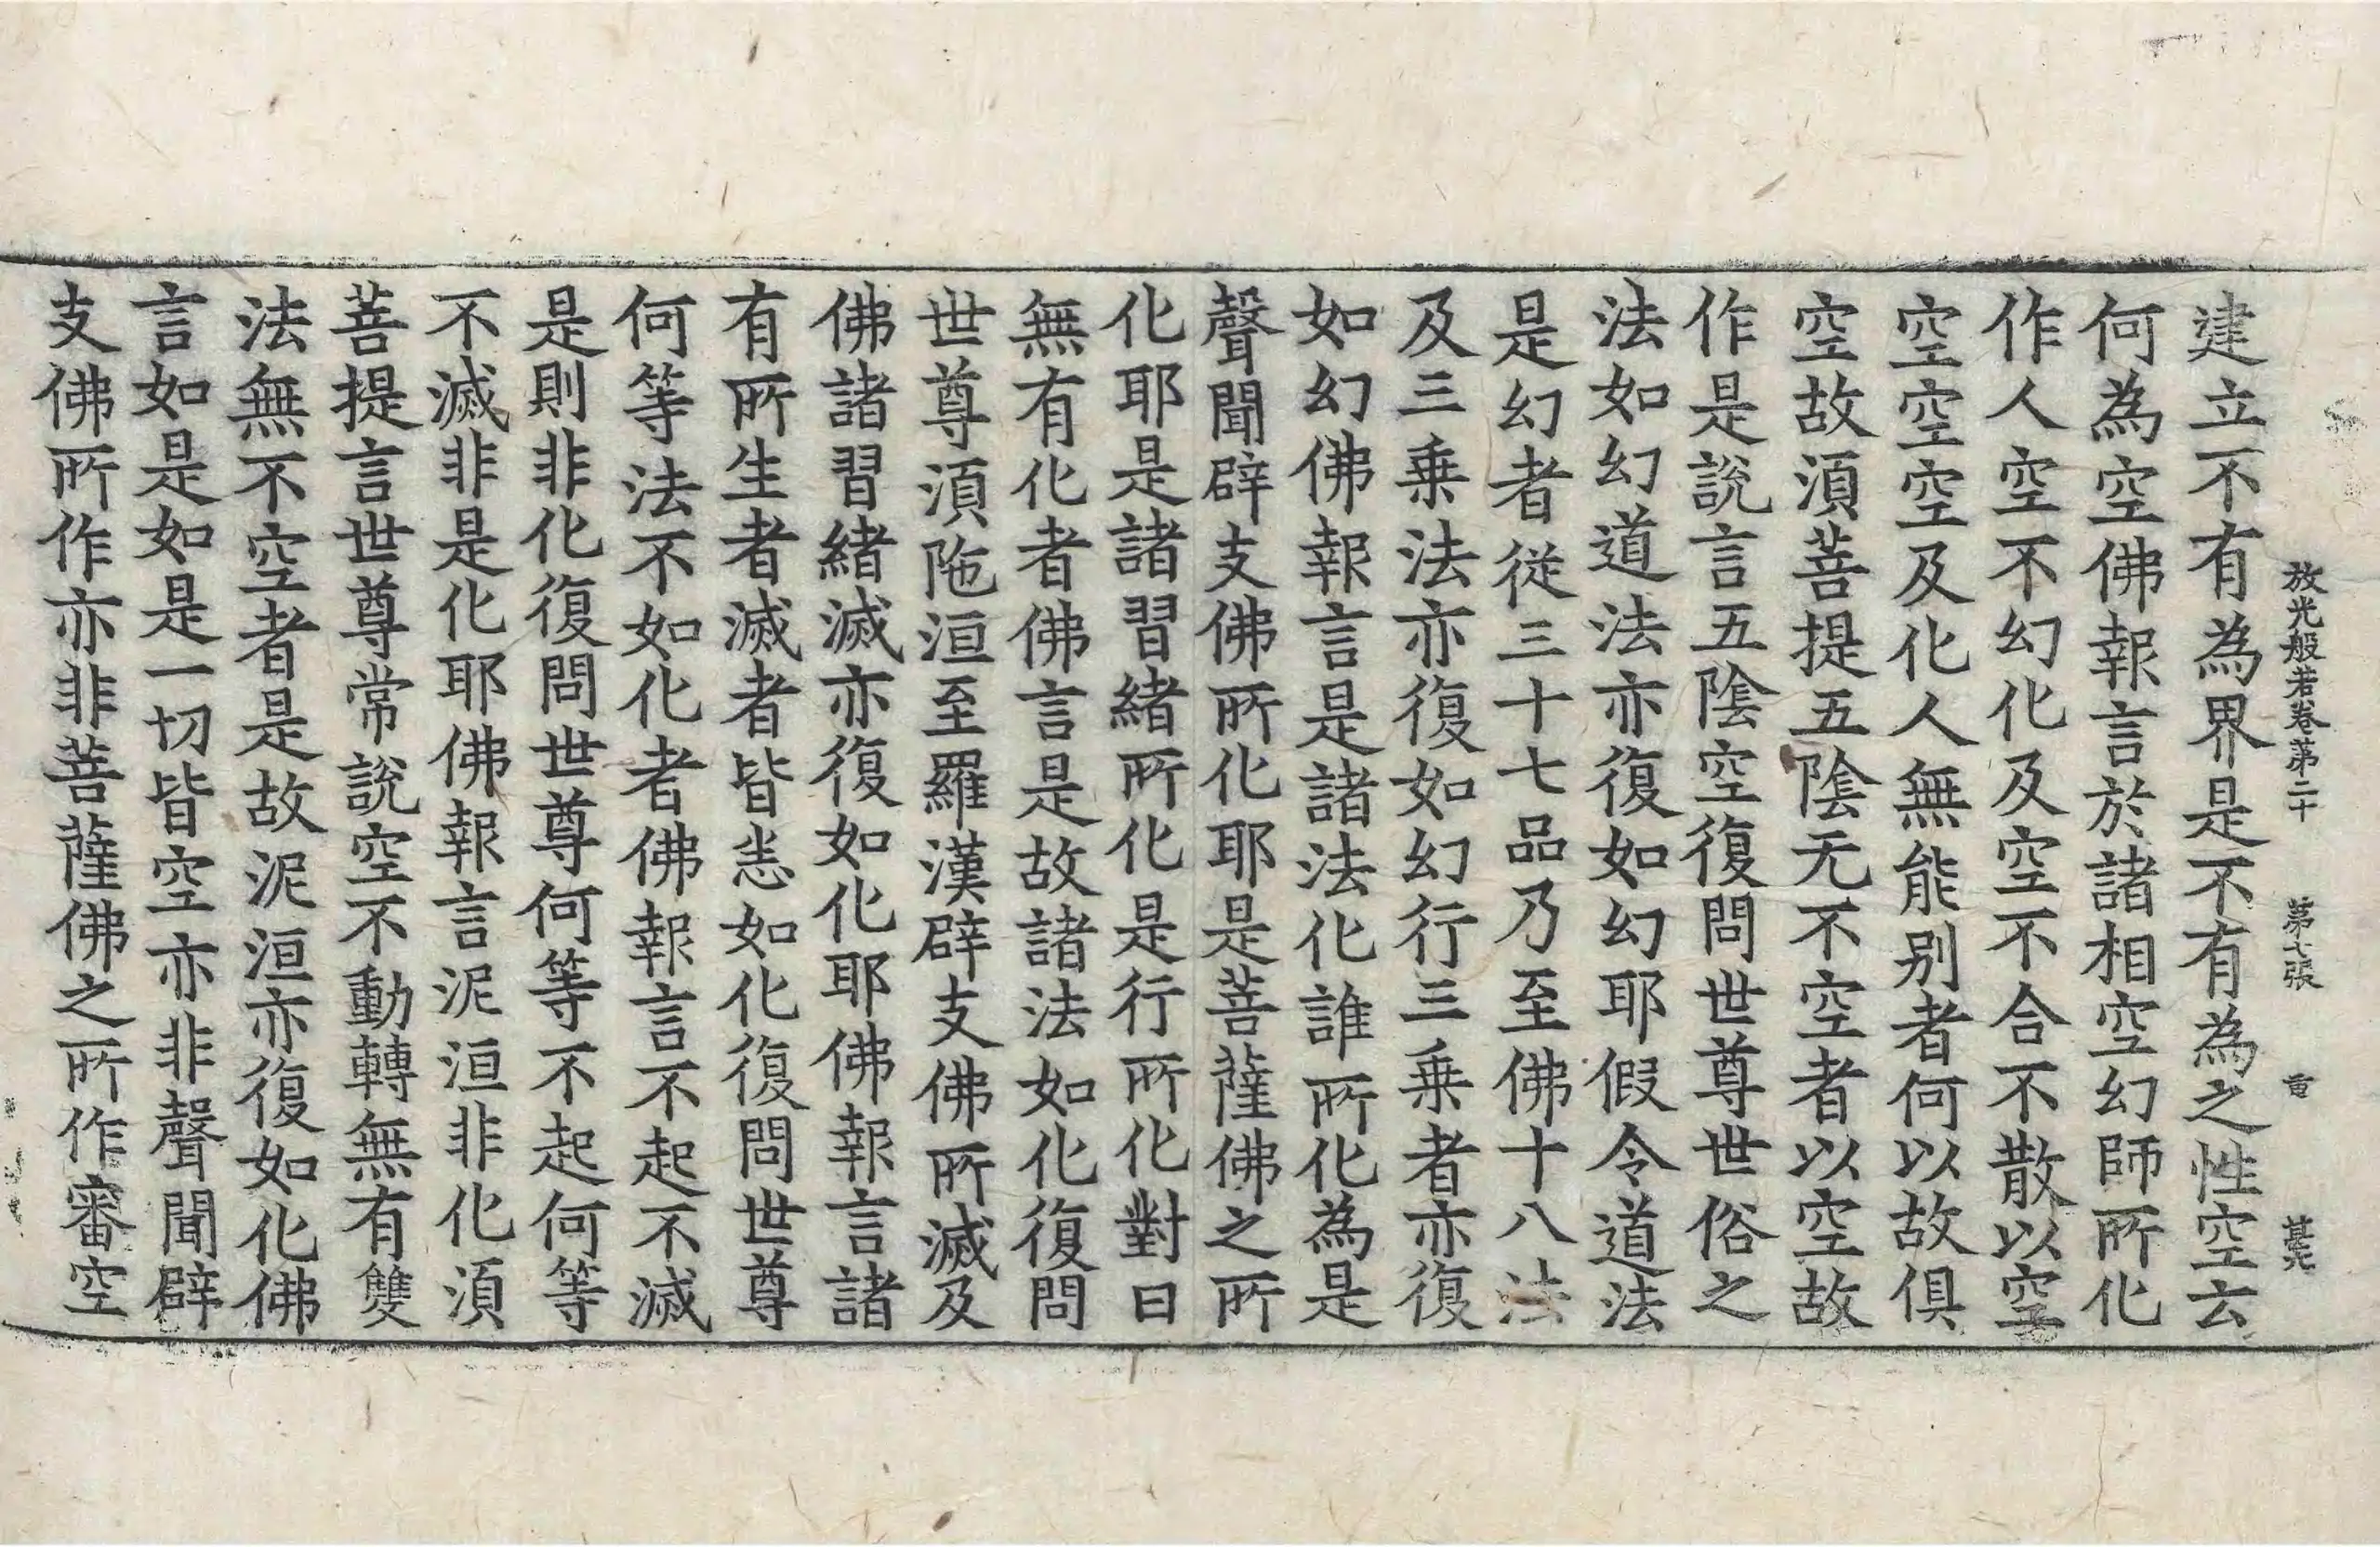 放光般若卷第二十 第七張 重
建立不有為界是不有為之性空云
何為空佛報言於諸相空幻師所化
作人空不幻化及空不合不散以空
空空空及化人無能別者何以故俱
空故湏菩提五陰无不空者以空故
作是說言五陰空復問世尊世俗之
法如幻道法亦復如幻耶假令道法
是幻者從三十七品乃至佛十八法
及三乗法亦復如幻行三乗者亦復
如幻佛報言是諸法化誰所化為是
聲聞辟支佛所化耶是菩薩佛之所
化耶是諸習緒所化是行所化對曰
無有化者佛言是故諸法如化復問
世尊湏陁洹至羅漢辟支佛所滅及
佛諸習緒滅亦復如化耶佛報言諸
有所生者滅者皆恙如化復問世尊
何等法不如化者佛報言不起不滅
是則非化復問世尊何等不起何等
不滅非是化耶佛報言泥洹非化湏
菩提言世尊常說空不動轉無有雙
法無不空者是故泥洹亦復如化佛
言如是如是一切皆空亦非聲聞辟
支佛所作亦非菩薩佛之所作審空